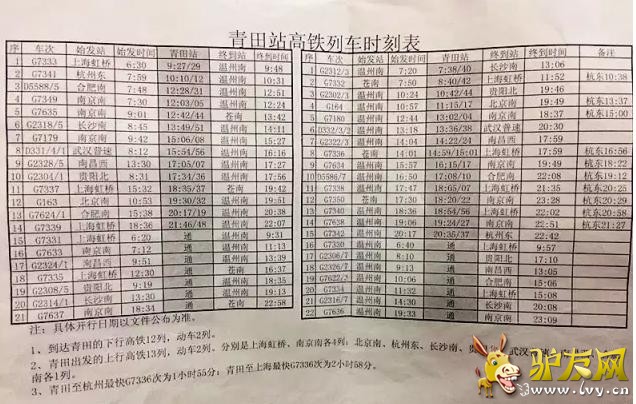 青田站高铁列车时刻表
序 车次 始发站 始发时间 青田站 终到站 终到时间
1 G7333 上海虹桥 6:30 9:27/29 温州南 9:48
2 G7341 杭州东 7:59 10:10/12 温州南 10:31
3 D5588/5 合肥南 7:48 12:28/31 温州南 12:51
4 G7349 南京南 7:30 12:03/05 温州南 12:24
5 G7635 南京南 9:01 12:42/44 苍南 13:42
6 G2318/5 长沙南 8:45 13:49/51 温州南 14:11
7 G7179 南京南 9:42 15:06/08 温州南 15:27
8 D331/4/1 武汉普速 8:12 15:54/56 温州南 16:16
9 G2328/5 南昌西 13:30 17:05/07 温州南 17:27
10 G2304/1 贵阳北 8:31 17:34/36 温州南 17:56
11 G7337 上海虹桥 15:32 18:35/37 苍南 19:42
12 G163 北京南 10:53 19:30/32 温州南 19:51
13 G7624/1 合肥南 15:38 20:17/19 温州南 20:38
14 G7339 上海虹桥 18:36 21:46/48 温州南 22:07
15 G7331 上海虹桥 6:20 通 温州南 9:31
16 G7633 南京南 7:20 通 温州南 11:13
17 G2324/1 南昌西 9:51 通 温州南 13:39
18 G7335 上海虹桥 12:30 通 苍南 16:37
19 G2308/5 贵阳北 9:19 通 温州南 18:33
20 G2314/1 长沙南 13:30 通 温州南 19:13
21 G7637 南京南 18:34 通 苍南 22:58
序 车次 始发站 始发时间 青田站 终到站 终到时间 备注
1 G2312/3 温州南 7:20 7:38/40 长沙南 13:06
2 G7332 苍南 7:50 8:40/42 上海虹桥 11:52 杭东10:38
3 G2302/3 温州南 10:24 10:42/44 贵阳北 19:46
4 G164 温州南 10:57 11:15/17 北京南 19:49 杭东13:37
5 G7180 温州南 12:44 13:02/04 南京南 18:38 杭东15:00
6 D332/3/2 温州南 13:18 13:36/38 武汉普速 20:30
7 G2322/3 温州南 14:04 14:22/24 南昌西 17:59
8 G7336 苍南 14:01 14:59/15:01 上海虹桥 17:59 杭东16:56
9 G7634 温州南 15:57 16:15/17 南京南 19:49 杭东18:22
10 D5586/7 温州南 16:50 17:08/10 合肥南 22:08 杭东19:12
11 G7338 温州南 17:47 18:05/07 上海虹桥 21:35 杭东20:25
12 G7350 苍南 17:30 18:20/22 南京南 22:52 杭东20:25
13 G7340 温州南 18:36 18:54/56 上海虹桥 22:02 杭东20:58
14 G7638 温州南 19:09 19:42 南京南 22:51 杭东21:27
15 G7342 温州南 20:17 20:35/37 杭州东 22:42
16 G7330 温州南 6:40 通 上海虹桥 9:57
17 G2306/7 温州南 8:10 通 贵阳北 17:10
18 G2326/7 温州南 9:13 通 南昌西 13:05
19 G7622/3 温州南 10:06 通 合肥南 15:06
20 G7334 温州南 11:58 通 上海虹桥 15:08
21 G2316/7 温州南 14:30 通 长沙南 20:08
22 G7636 温州南 14:33 通 南京南 23:09
注：具体开行日期以文件公布为准。
1、到达青田的下行高铁12列，动车2列。
2、青田出发的上行高铁13列，动车2列。分别是上海虹桥、南京南各4列；北京南、杭州东、长沙南、贵 武汉
南各1列。
3、青田至杭州最快G7336次为1小时55分；青田至上海最快G7336次为2小时58分。
驴友网
www.lvy.cn